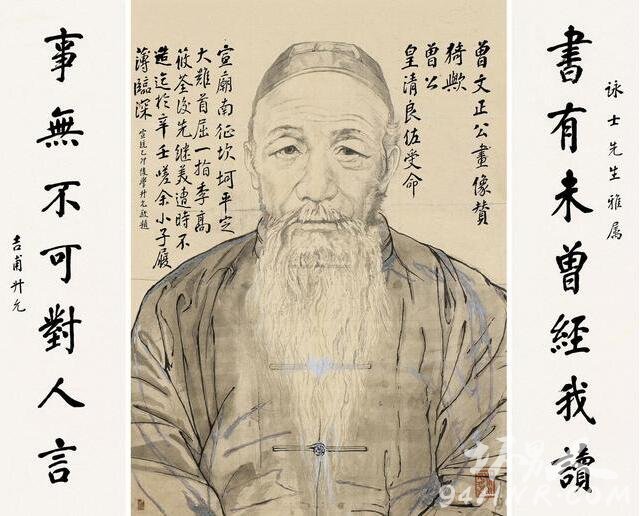 詠士先生雅屬
書有未曾經我讀
曾文正公畫像贊
猗歟
曾公
皇清良佐受命
宣廟南征坎坷平定
大難首屈一指李高
筱荃後先繼美遭時不
造迄於辛壬嗟余小子履
薄臨深
宣統乙卯後學升允敬題
事無不可對人言
吉甫升允
94HNR.COM